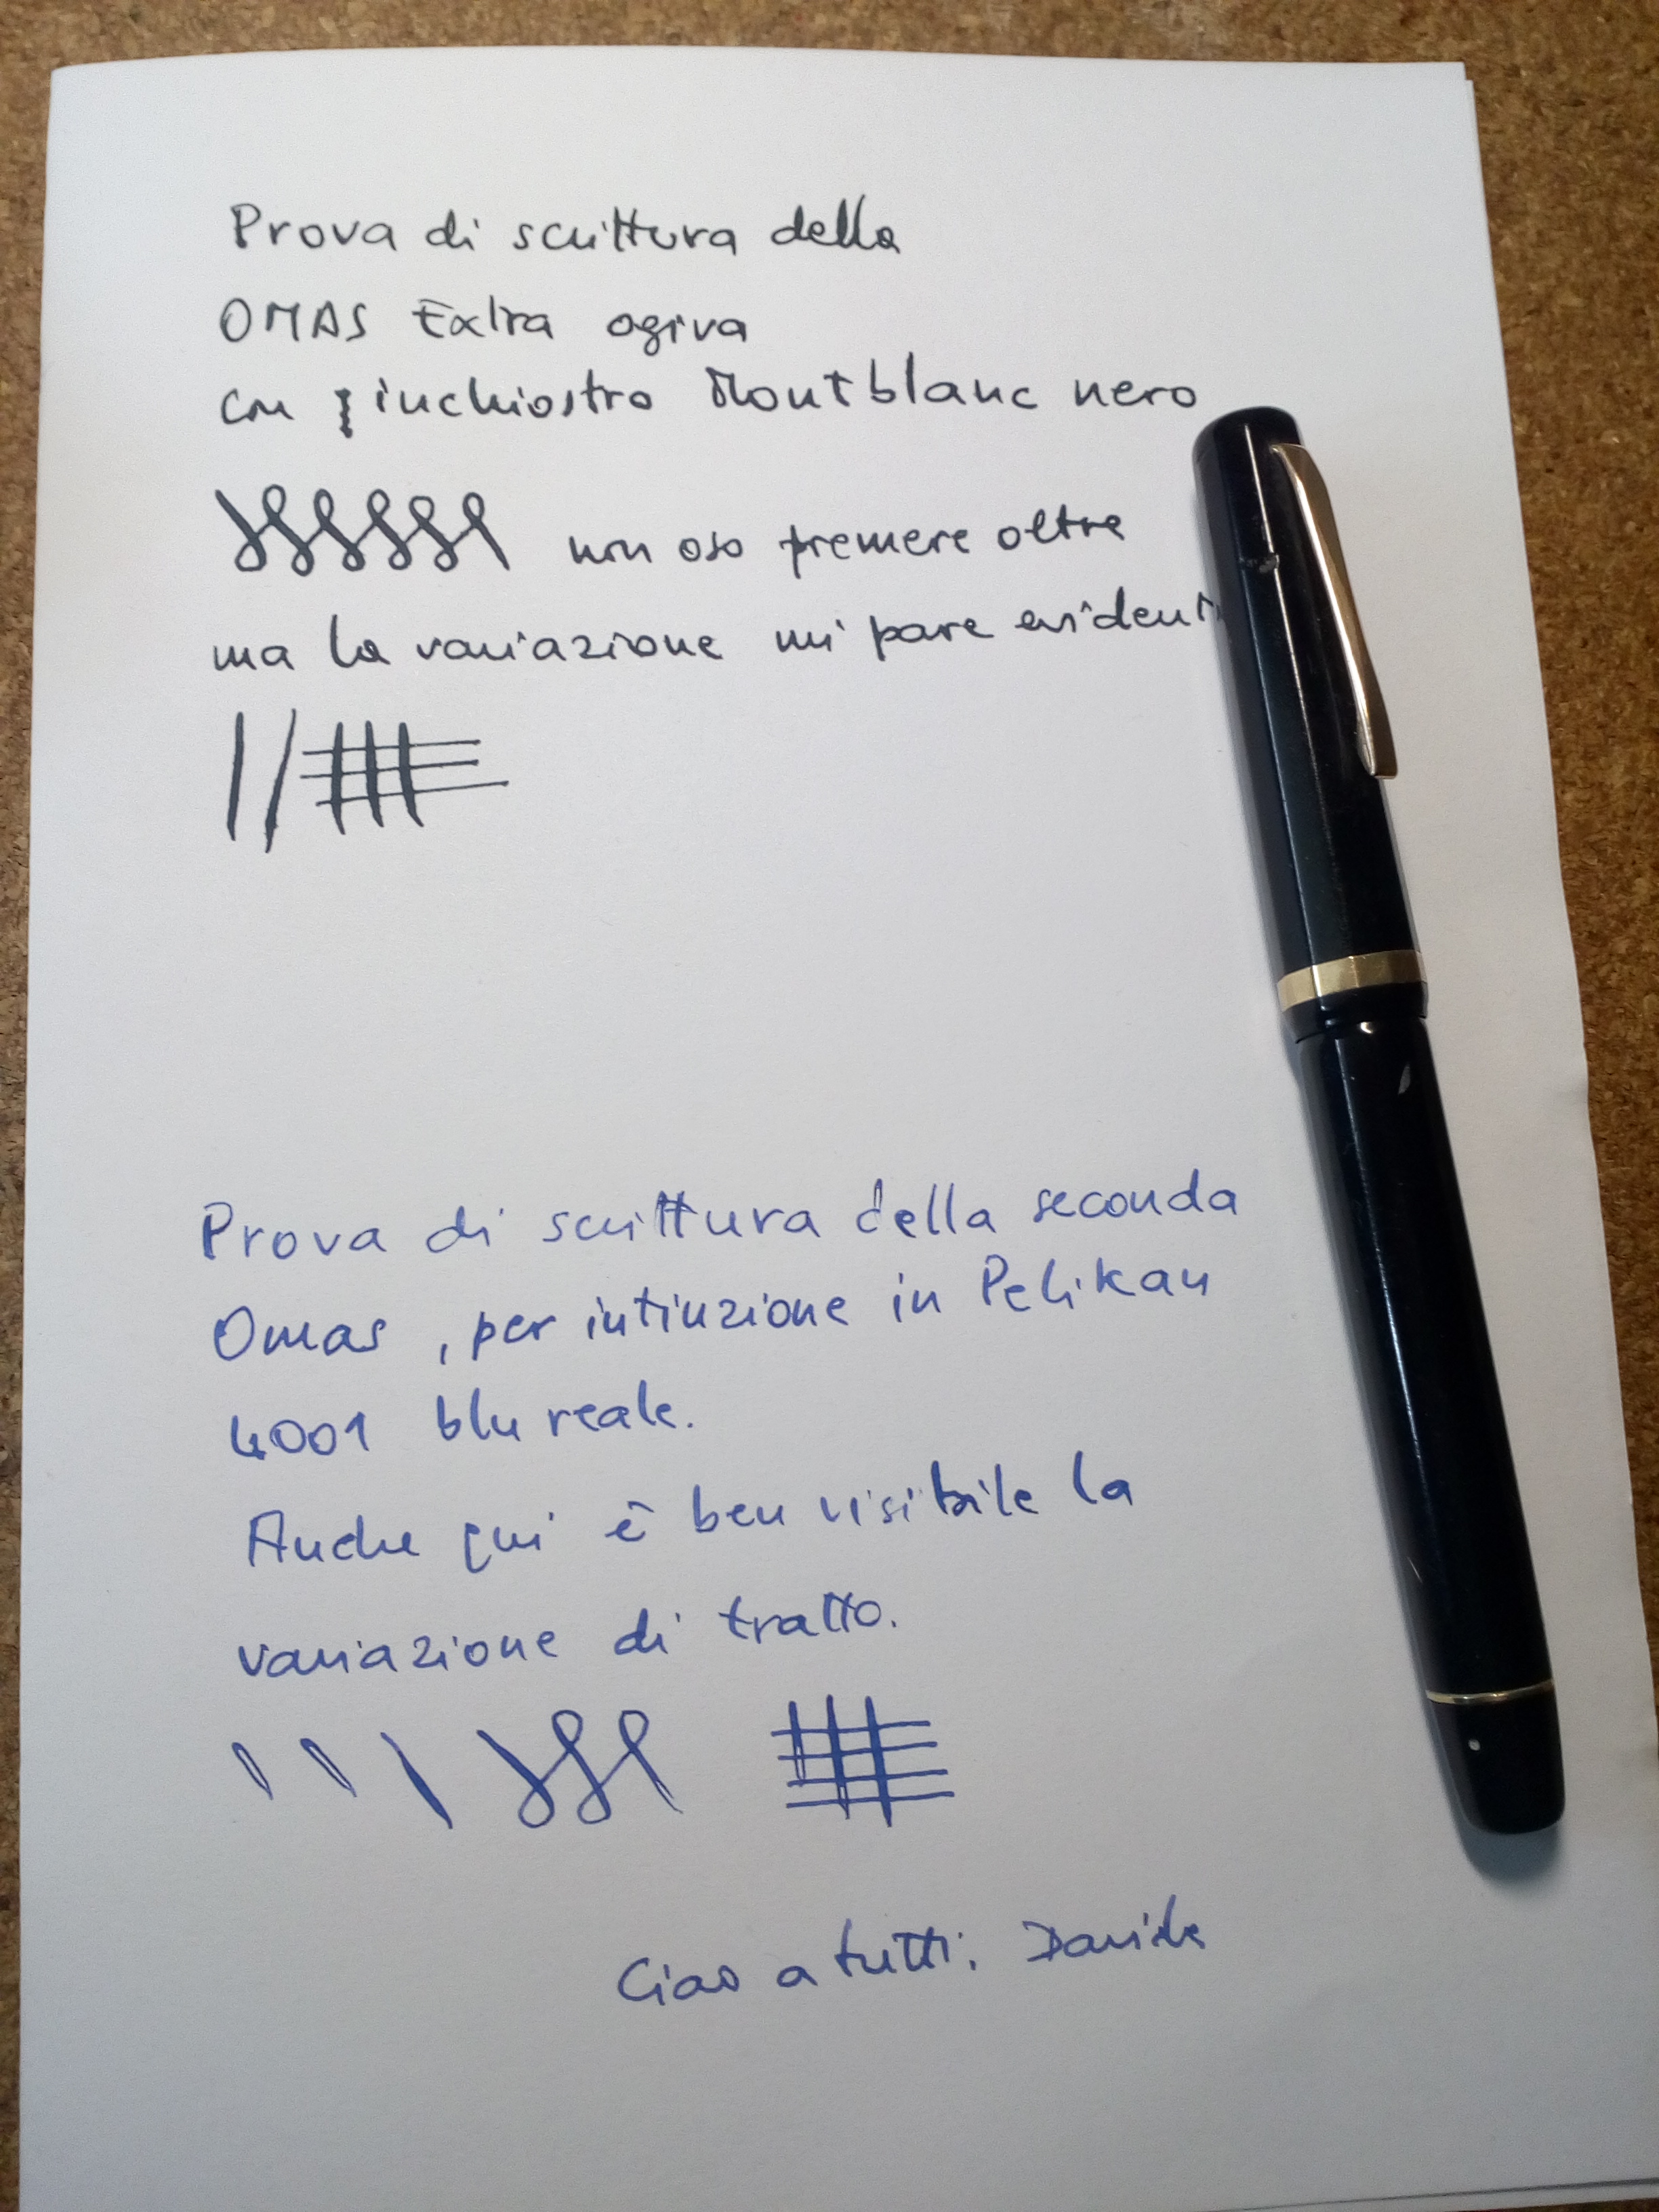 Prova di scrittura della
OMAS Extra ogiva
con inchiostro Montblanc nero
non oso premere oltre
ma la variazione mi pare
Prova di scrittura della seconda
Omas, per intinzione in Pelikan
4001 blu reale.
Anche qui è ben visibile la
variazione di tratto.
Ciao a tutti. Davide